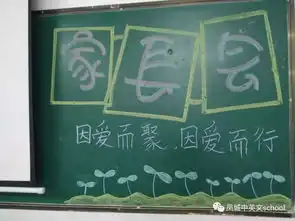 家长会
因爱而聚、因爱而行
凤城中英文school